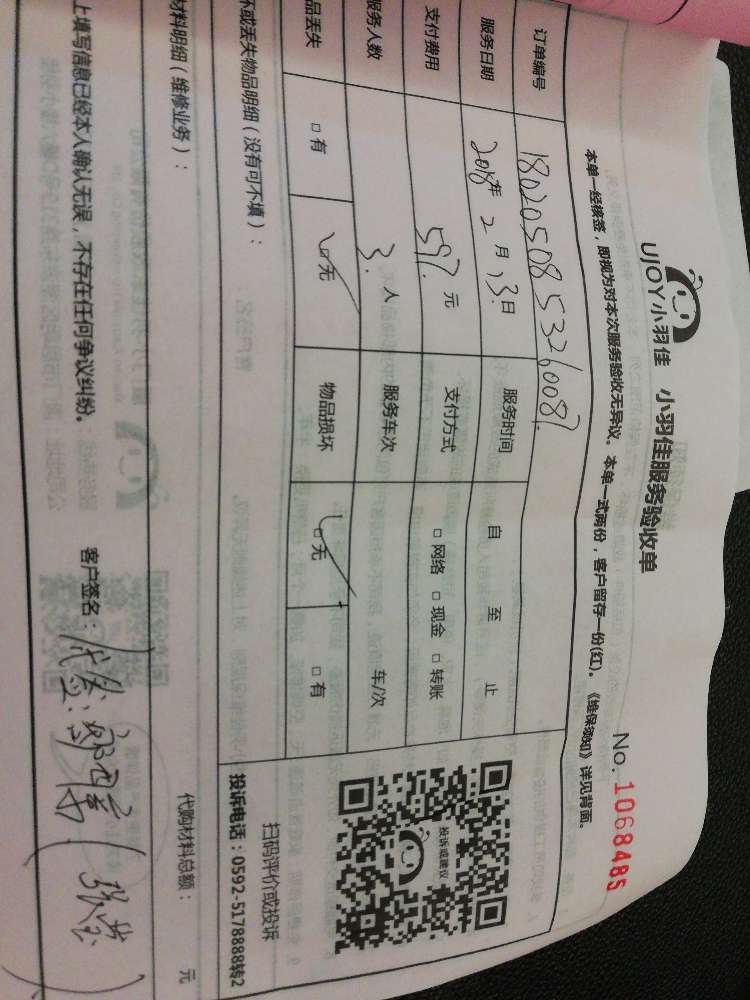 UJOY小羽佳 小羽佳服务验收单
No. 1068485
本单一经核签，即视为对本次服务验收无异议。本单一式两份，客户留存一份(红)。《维保须知》详见背面。
订单编号 180205085326008
服务日期 2018年 2 月 13日 服务时间 自 至 止
支付费用 597. 元 支付方式 □ 网络 □ 现金 □ 转账
服务人数 3. 人 服务车次 车/次
品丢失 □ 有 □ 无 物品损坏 □ 无 □ 有
坏或丢失物品明细（没有可不填）：
投诉或建议
扫码评价或投诉
投诉电话：0592-5178888转2
材料明细（维修业务）：
代购材料总额： 元
上填写信息已经本人确认无误，不存在任何争议纠纷。 客户签名：